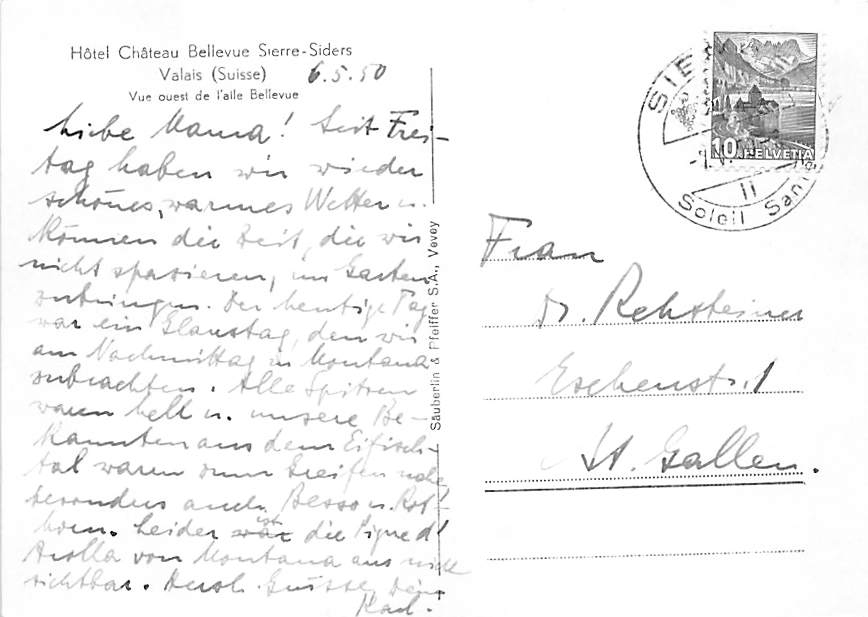 Hôtel Château Bellevue Sierre-Siders
Valais (Suisse) 6.5.50
Vue ouest de l'aile Bellevue
Liebe Mama! Seit Frei-
tag haben wir wieder
schönes, warmes Wetter u.
können die Zeit, die wir
nicht spazieren, im Garten
zubringen. Der heutige Tag
war ein Glanztag, den wir
am Nachmittag in Montana
zubrachten. Alle Spitzen
waren hell u. unsere Be-
kannten aus dem Eifisch-
tal waren zum Greifen nahe,
besonders auch Besso u. Rot-
horn. Leider war ist die Pigne d'
Arolla von Montana aus nicht
sichtbar. Herzl. Grüsse, Dein
Karl.
Säuberlin & Pfeiffer S.A., Vevey
SIE
10 HELVETIA
II
Soleil
Frau
Dr. Rehsteiner
Eschenstr. 1
St. Gallen.